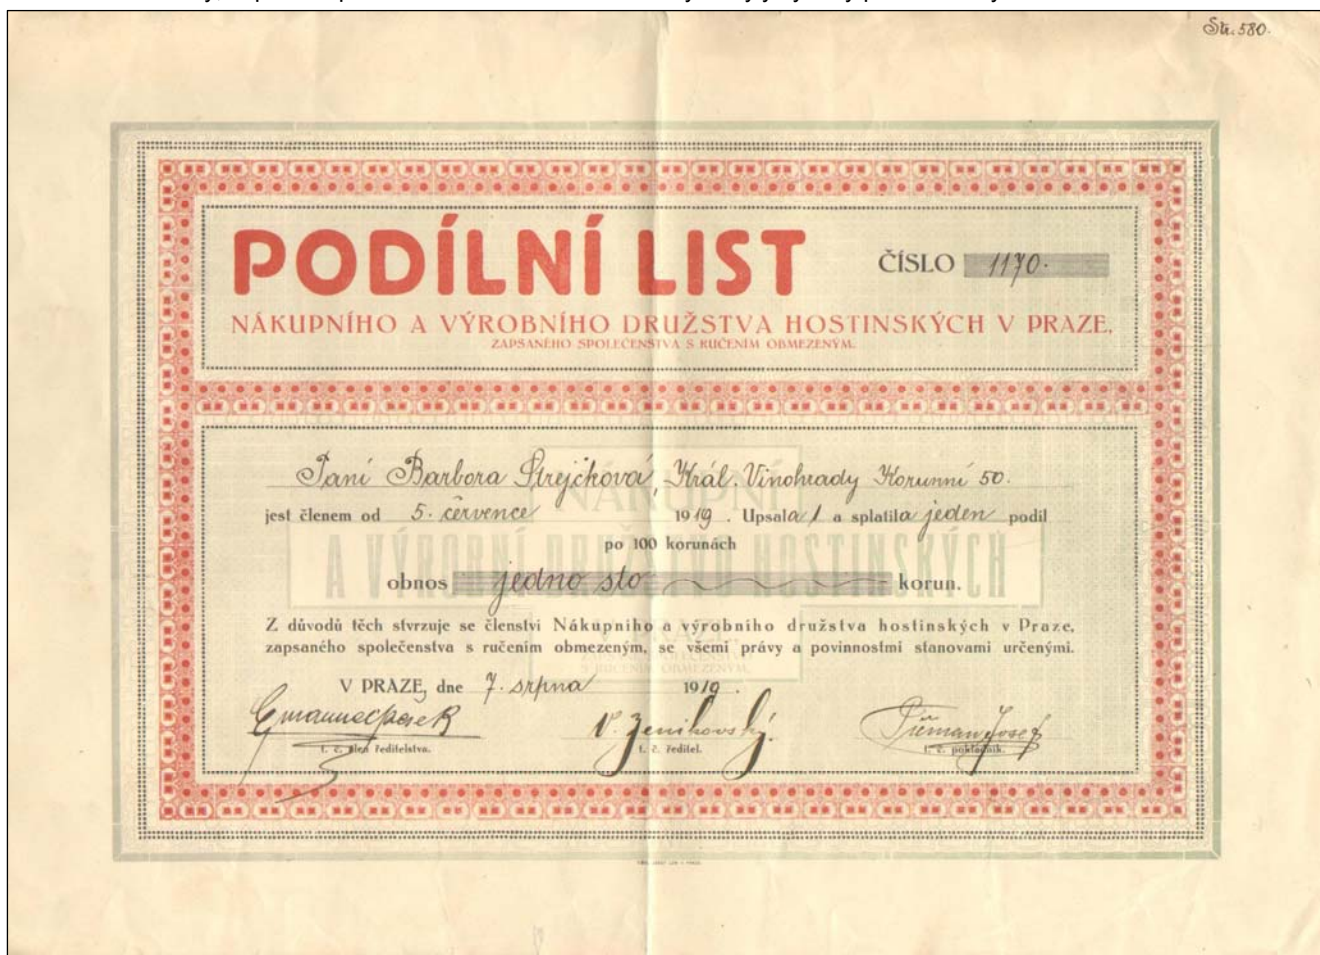 Str. 580.
PODÍLNÍ LIST
ČÍSLO 1170.
NÁKUPNÍHO A VÝROBNÍHO DRUŽSTVA HOSTINSKÝCH V PRAZE,
ZAPSANÉHO SPOLEČENSTVA S RUČENÍM OBMEZENÝM.
Paní Barbora Strejčková, Král. Vinohrady Korunní 50.
jest členem od 5. července 1919. Upsala 1 a splatila jeden podíl
po 100 korunách
obnos jedno sto korun.
NÁKUPNÍ
A VÝROBNÍ DRUŽSTVO HOSTINSKÝCH
V PRAZE,
S RUČENÍM OBMEZENÝM.
Z důvodů těch stvrzuje se členství Nákupního a výrobního družstva hostinských v Praze,
zapsaného společenstva s ručením obmezeným, se všemi právy a povinnostmi stanovami určenými.
V PRAZE, dne 7. srpna 1919.
V. Zenihovský.
Josef
t. č. člen ředitelstva.
t. č. ředitel.
t. č. pokladník.